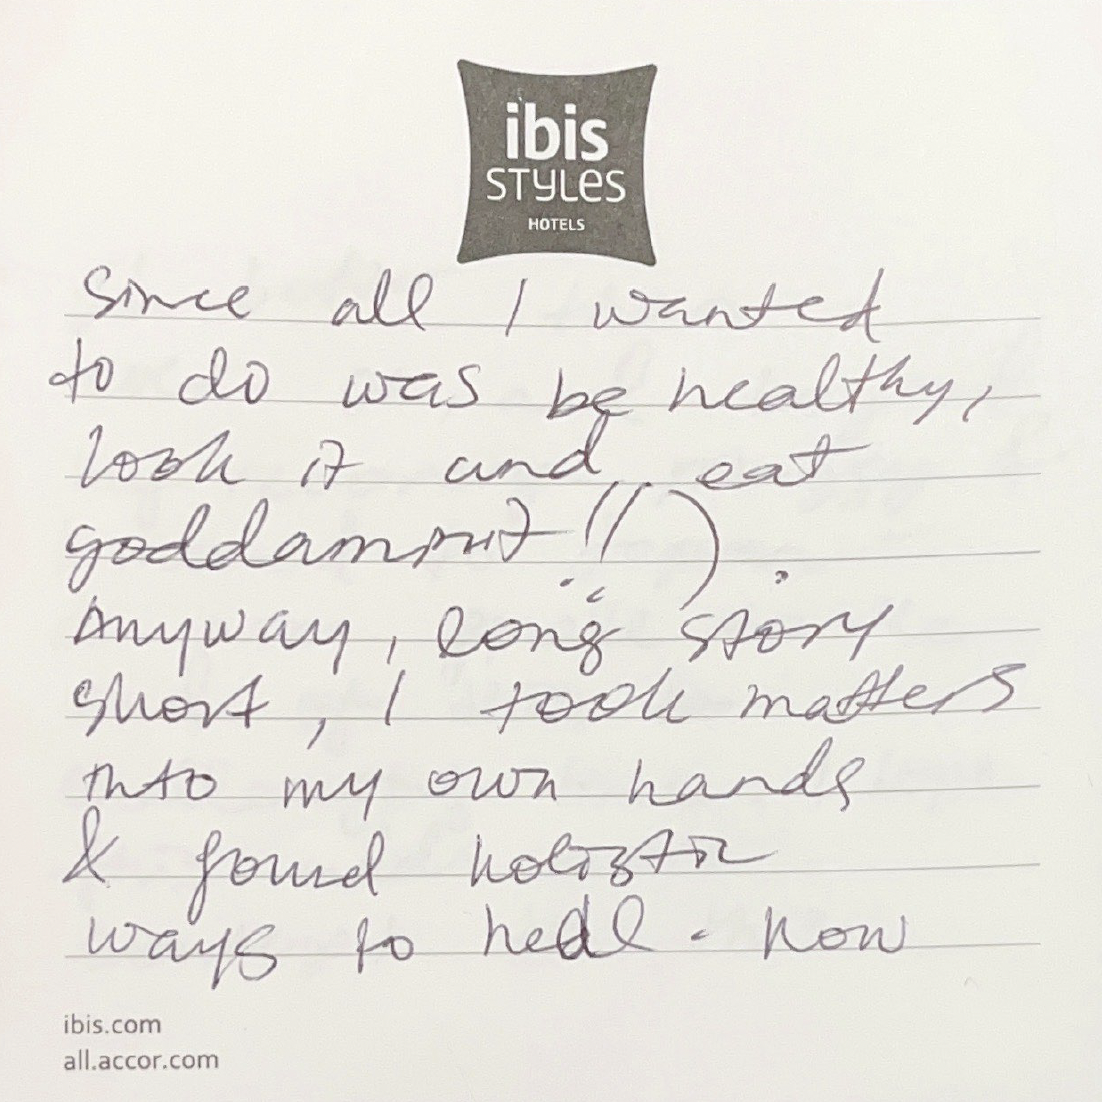 ibis
STYLES
HOTELS
Since all I wanted
to do was be healthy,
look it and eat
goddamnit!!).
Anyway, long story
short, I took matters
into my own hands
& found holistic
ways to heal. Now
ibis.com
all.accor.com